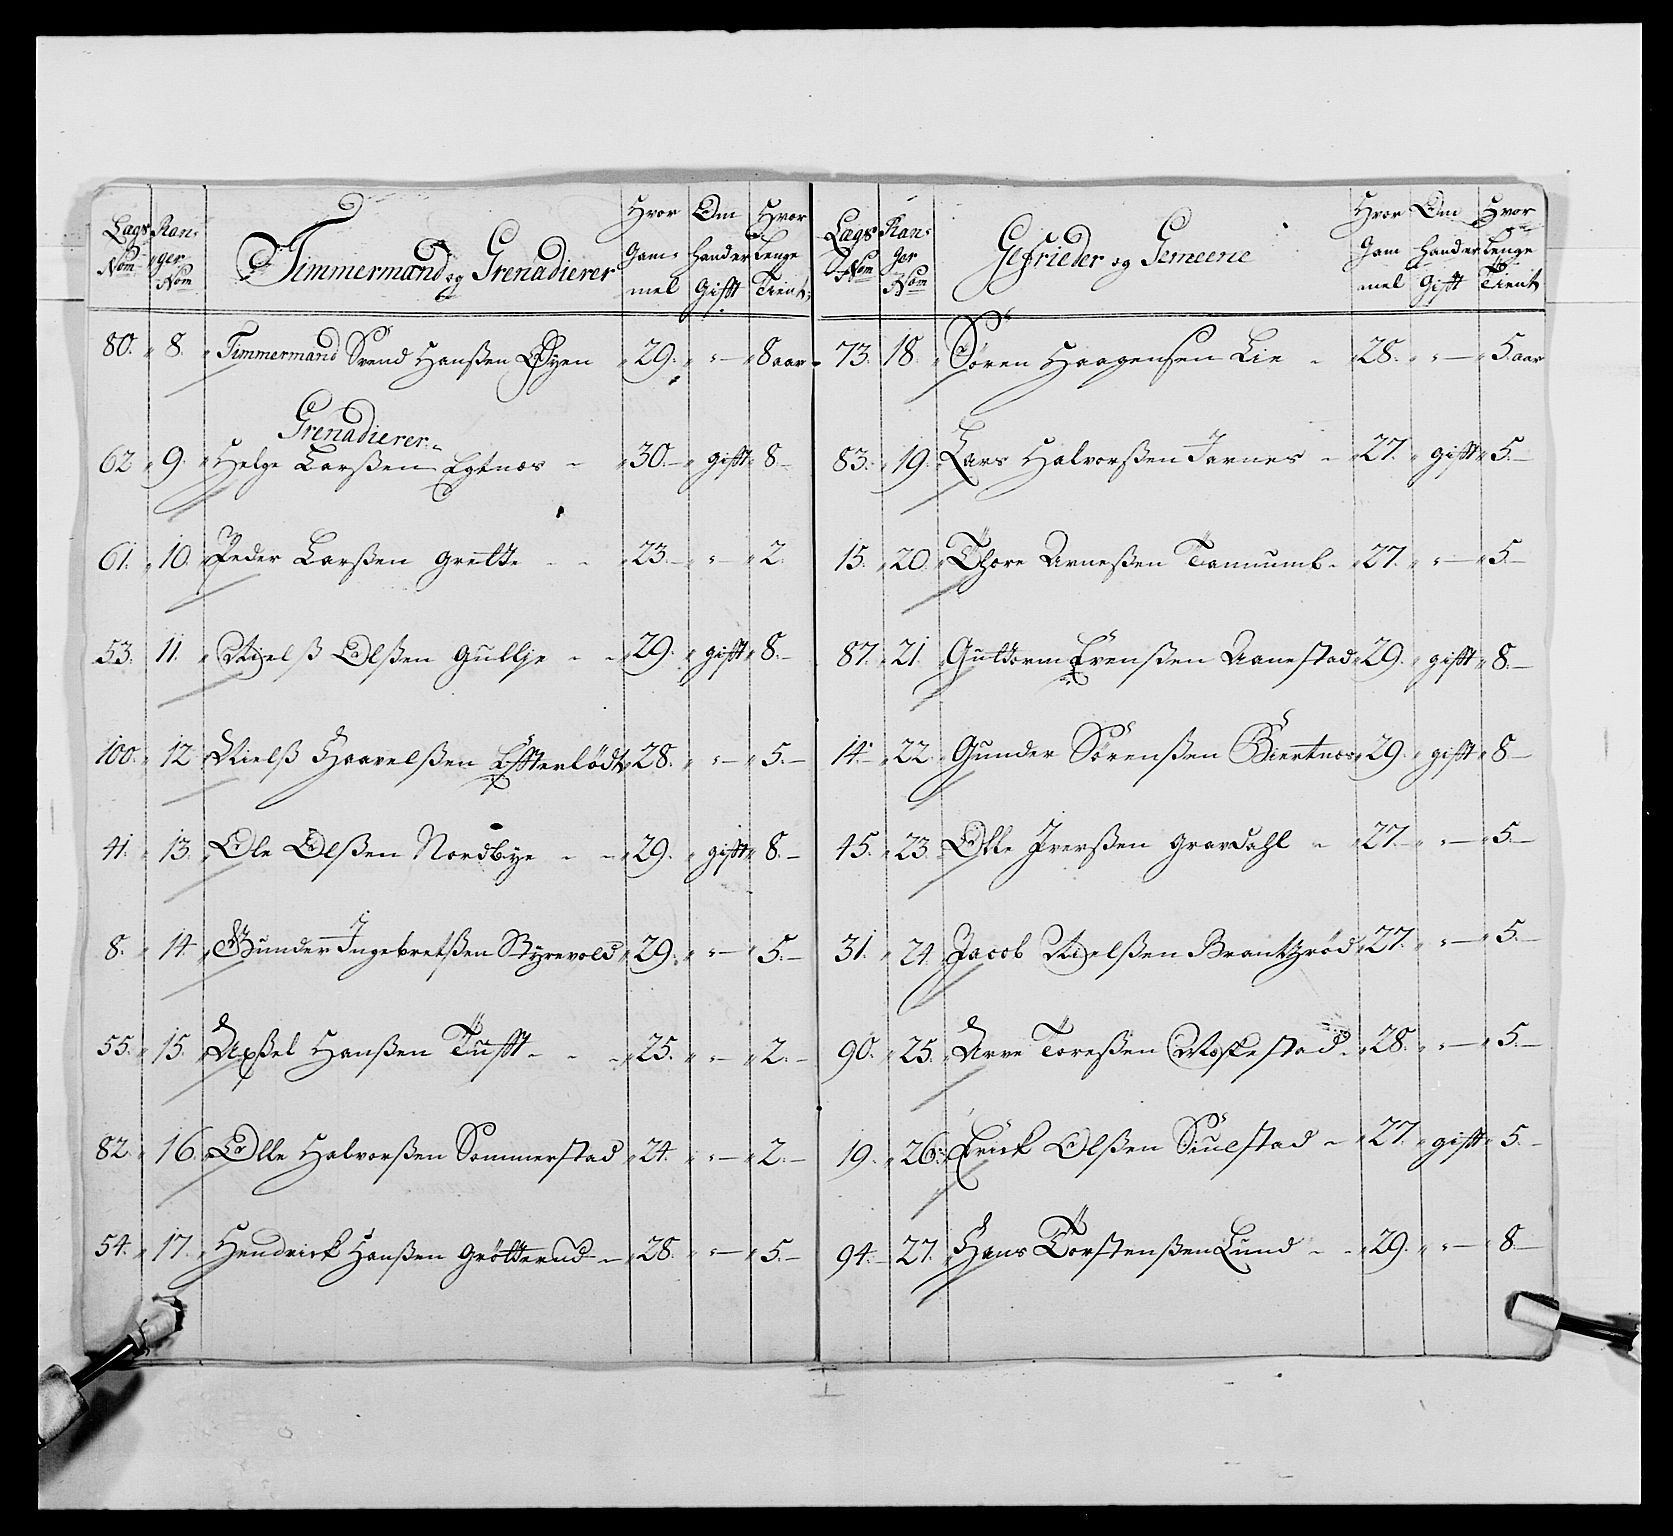 Lags Nom | Ran: ger Nom | Timmermand og Grenadierer | Hvor Gam: mel | Om hand er Gifft | Hvor Lenge Tient
80. 8. Timmermand Svend Hanßen Øyen 29. " — 8 aar
Grenadierer
62 9. Helge Larßen Egtnæs 30. gifft 8
61. 10. Peder Larßen Grette 23. " — 2.
53. 11. Nielß Olßen Gullje 29. gifft 8.
100. 12 Nielß Haavelßen Efterlödt 28. " — 5.
41. 13. Ole Olßen Nordbye 29. gifft 8.
8. 14. Gunder Ingebretßen Styrevold 29. " — 5.
55. 15. Axßel Hanßen Tufft 25. " — 2.
82. 16. Olle Halvorßen Sommerstad 24. " — 2.
54. 17. Hendrick Hanßen Grötterud 28. " — 5.
Lags Nom | Ran: ger Nom | Gefrieder og Gemeene | Hvor Gam mel | Om hand er Gifft | Hvor Lenge Tient
73. 18. Søren Haagensen Lie 28. " — 5. aar
83. 19. Lars Halvorßen Jarnes 27. gifft 5.
15. 20. Thore Arneßen 27. " — 5
87. 21. Guttorm Evenßen Aanestad 29. gifft 8.
14. 22. Gunder Sørenßen Biertnæs 29. gifft 8
45. 23. Olle Iverßen Gravdahl 27. " — 5.
31. 24. Jacob Nielßen Brantzröd 27. " — 5.
90. 25. Arve Toreßen Moskestad 28. " — 5.
19. 26. Erick Olßen Siulstad 27. gifft 5.
94. 27. Hans Torstenßen Lund 29. " — 8.